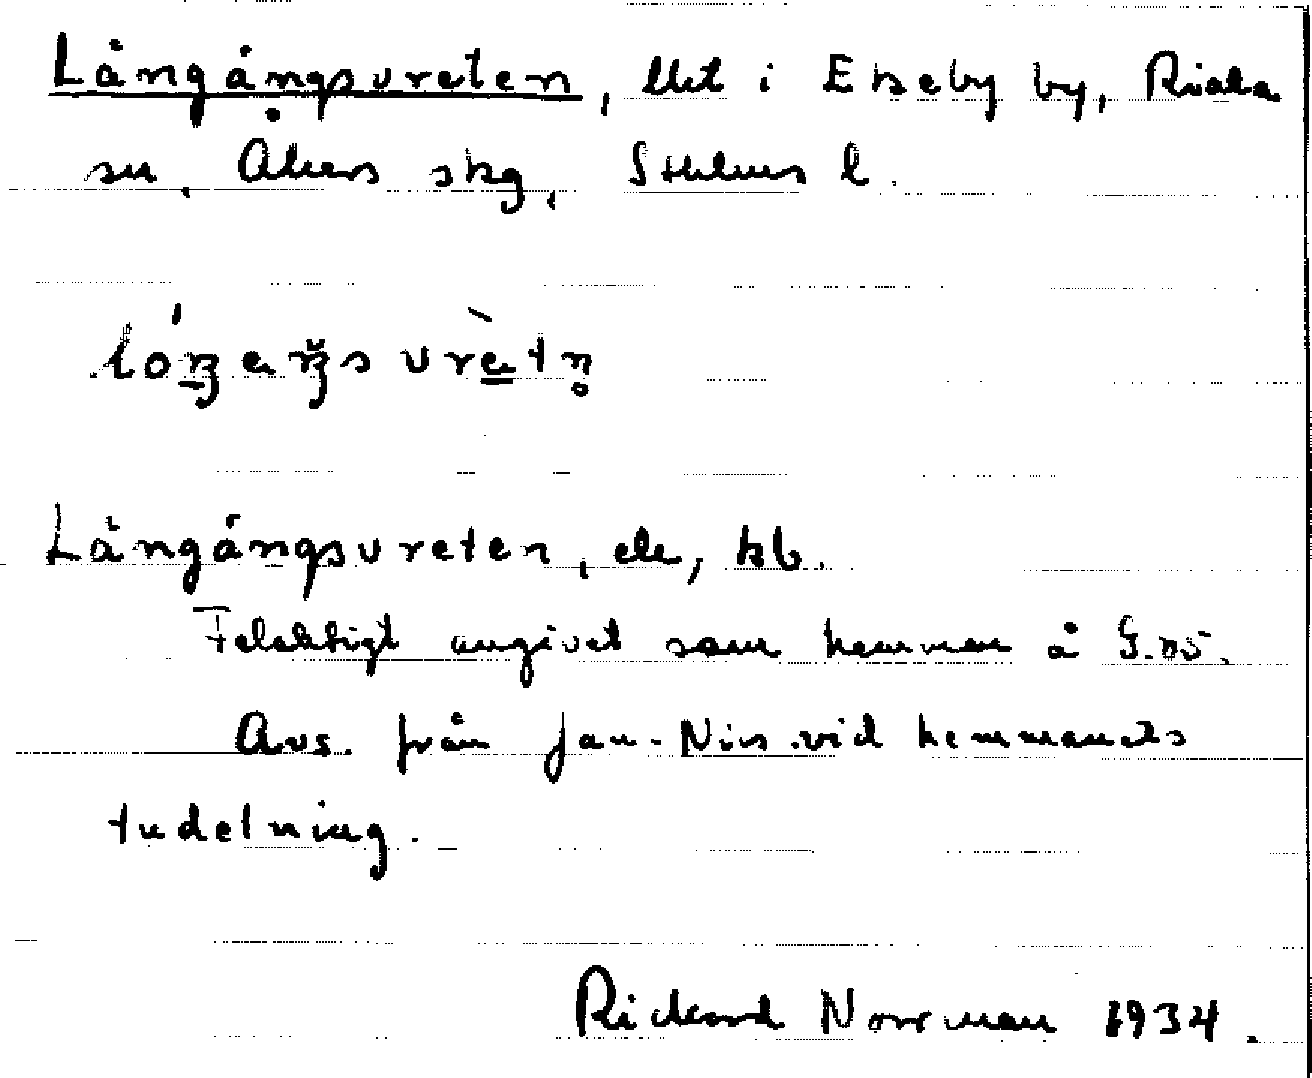 Långångsvreten, llht i Ekeby by, Riala
sn, Åkers skg, Sthlms l.
Långångsvreten, ele, kb.
Felaktigt angivet som hemman å G.
Avs. från Jan-Nirs vid hemmanets
tudelning.
Rickard Norrman 1934.